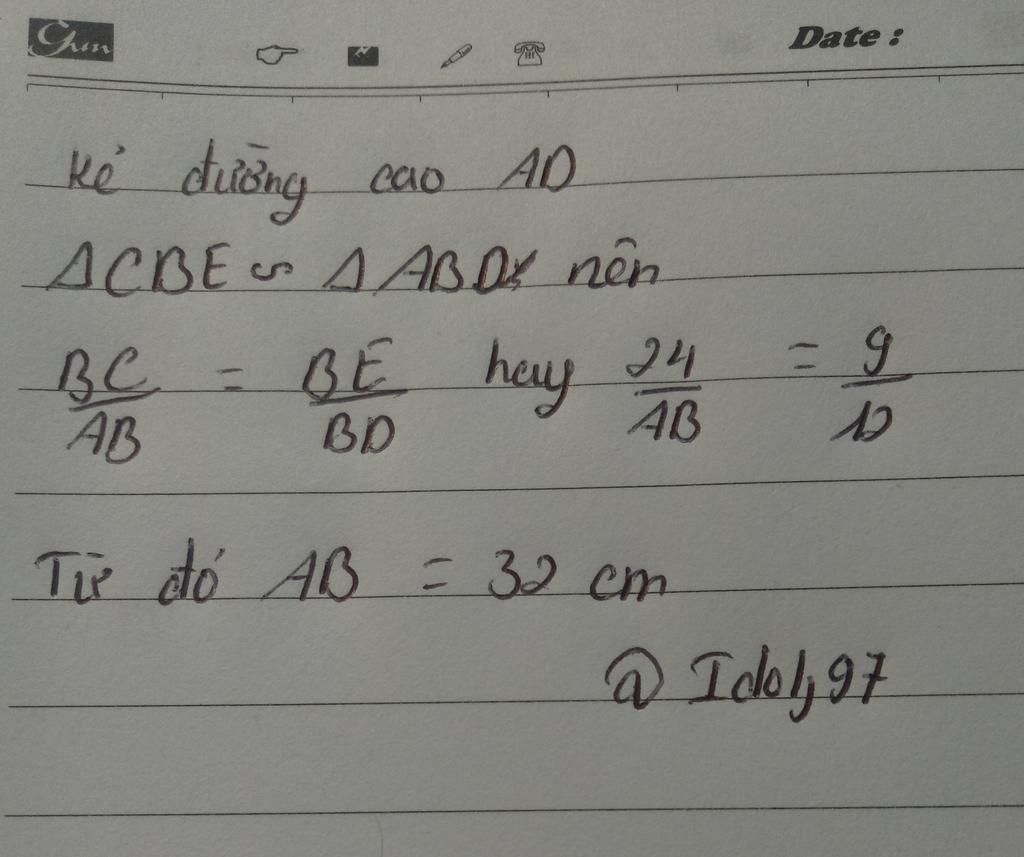 Gun Date :
Kẻ đường cao AD
ΔCBE ∽ ΔABD nên
BC/AB = BE/BD hay 24/AB = 9/12
Từ đó AB = 32 cm